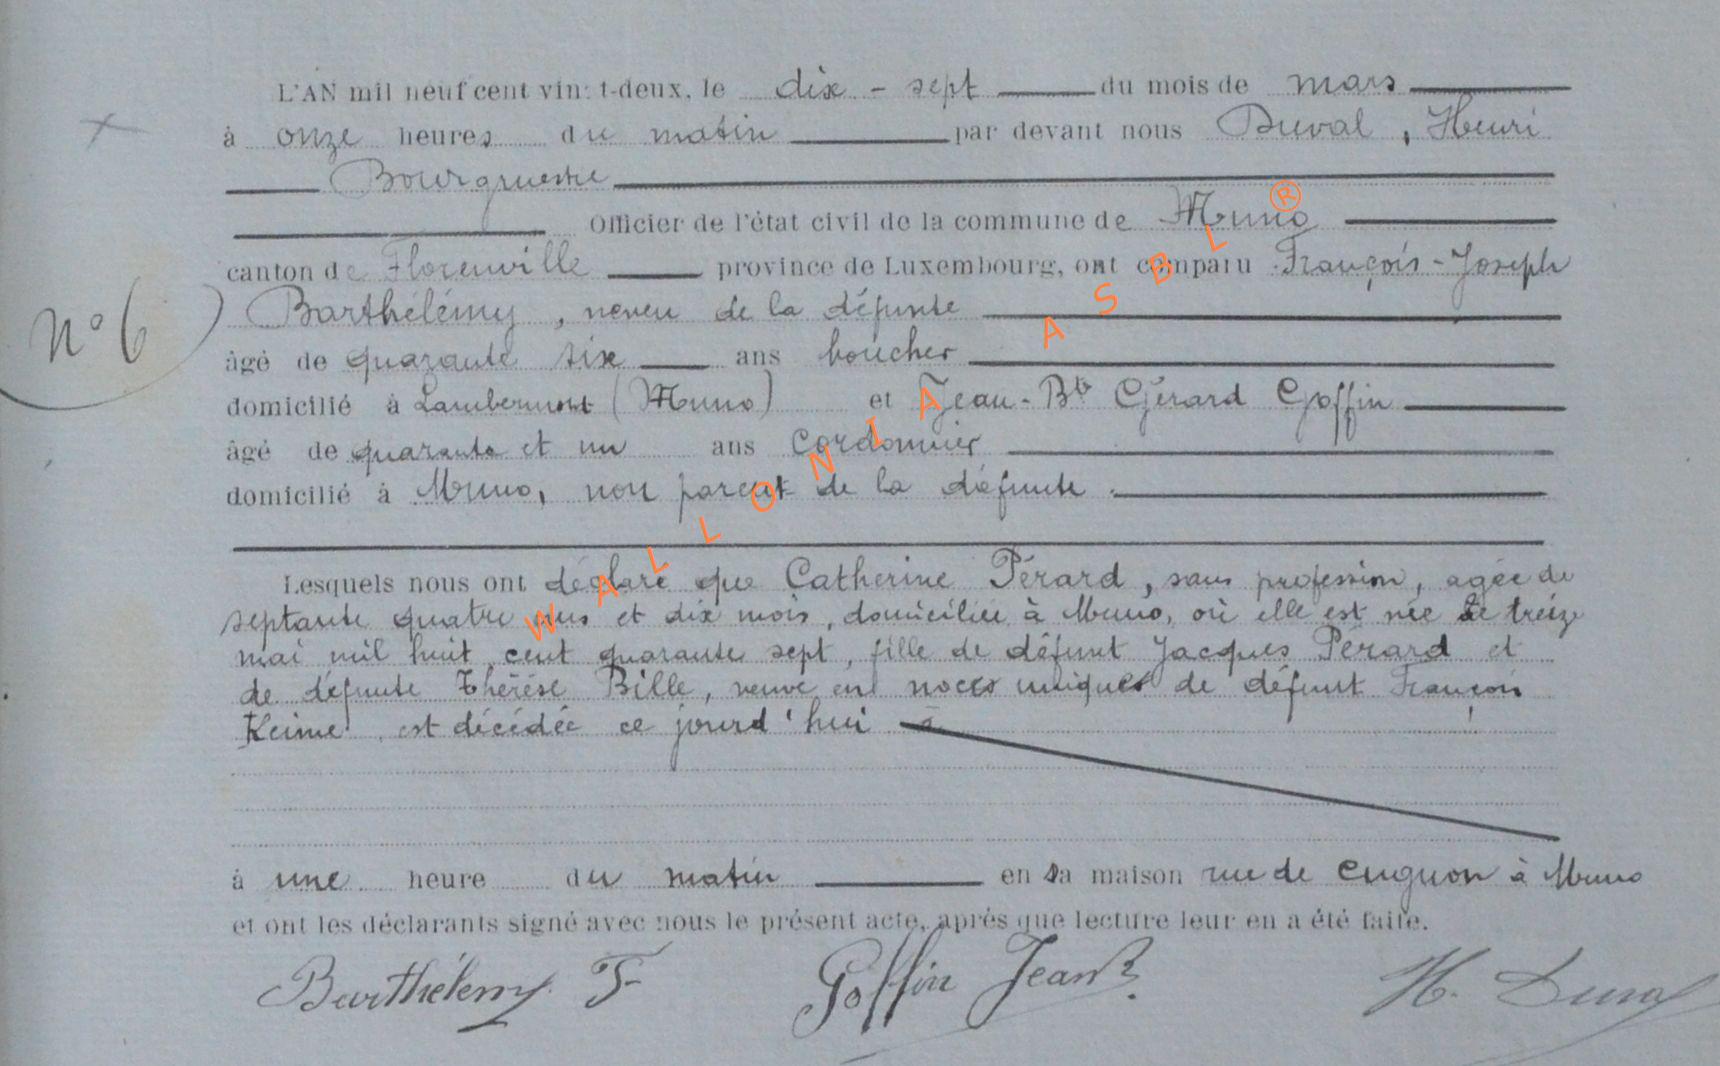 L'AN mil neuf cent vin t-deux, le dix - sept du mois de mars
à onze heures du matin par devant nous Duval, Henri
Bourgmestre
Officier de l'état civil de la commune de Muno
canton de Florenville province de Luxembourg, ont comparu François-Joseph
Barthélémy, neveu de la défunte
N° 6
âgé de quarante six ans boucher
domicilié à Lambermont (Muno) et Jean-Bte Gérard Goffin
âgé de quarante et un ans cordonnier
domicilié à Muno, non parent de la défunte.
Lesquels nous ont déclaré que Catherine Pérard, sans profession, agée de
septante quatre ans et dix mois, domiciliée à Muno, où elle est née le treize
mai mil huit cent quarante sept, fille de défunt Jacques Pérard et
de défunte Thérèse Bille, veuve en noces uniques de défunt François
Keime, est décédée ce jourd'hui
à une heure du matin en sa maison rue de Cugnon à Muno
et ont les déclarants signé avec nous le présent acte, après que lecture leur en a été faite.
Barthélemy F Goffin Jean B. H. Duval
WALLONIA ASBL ®